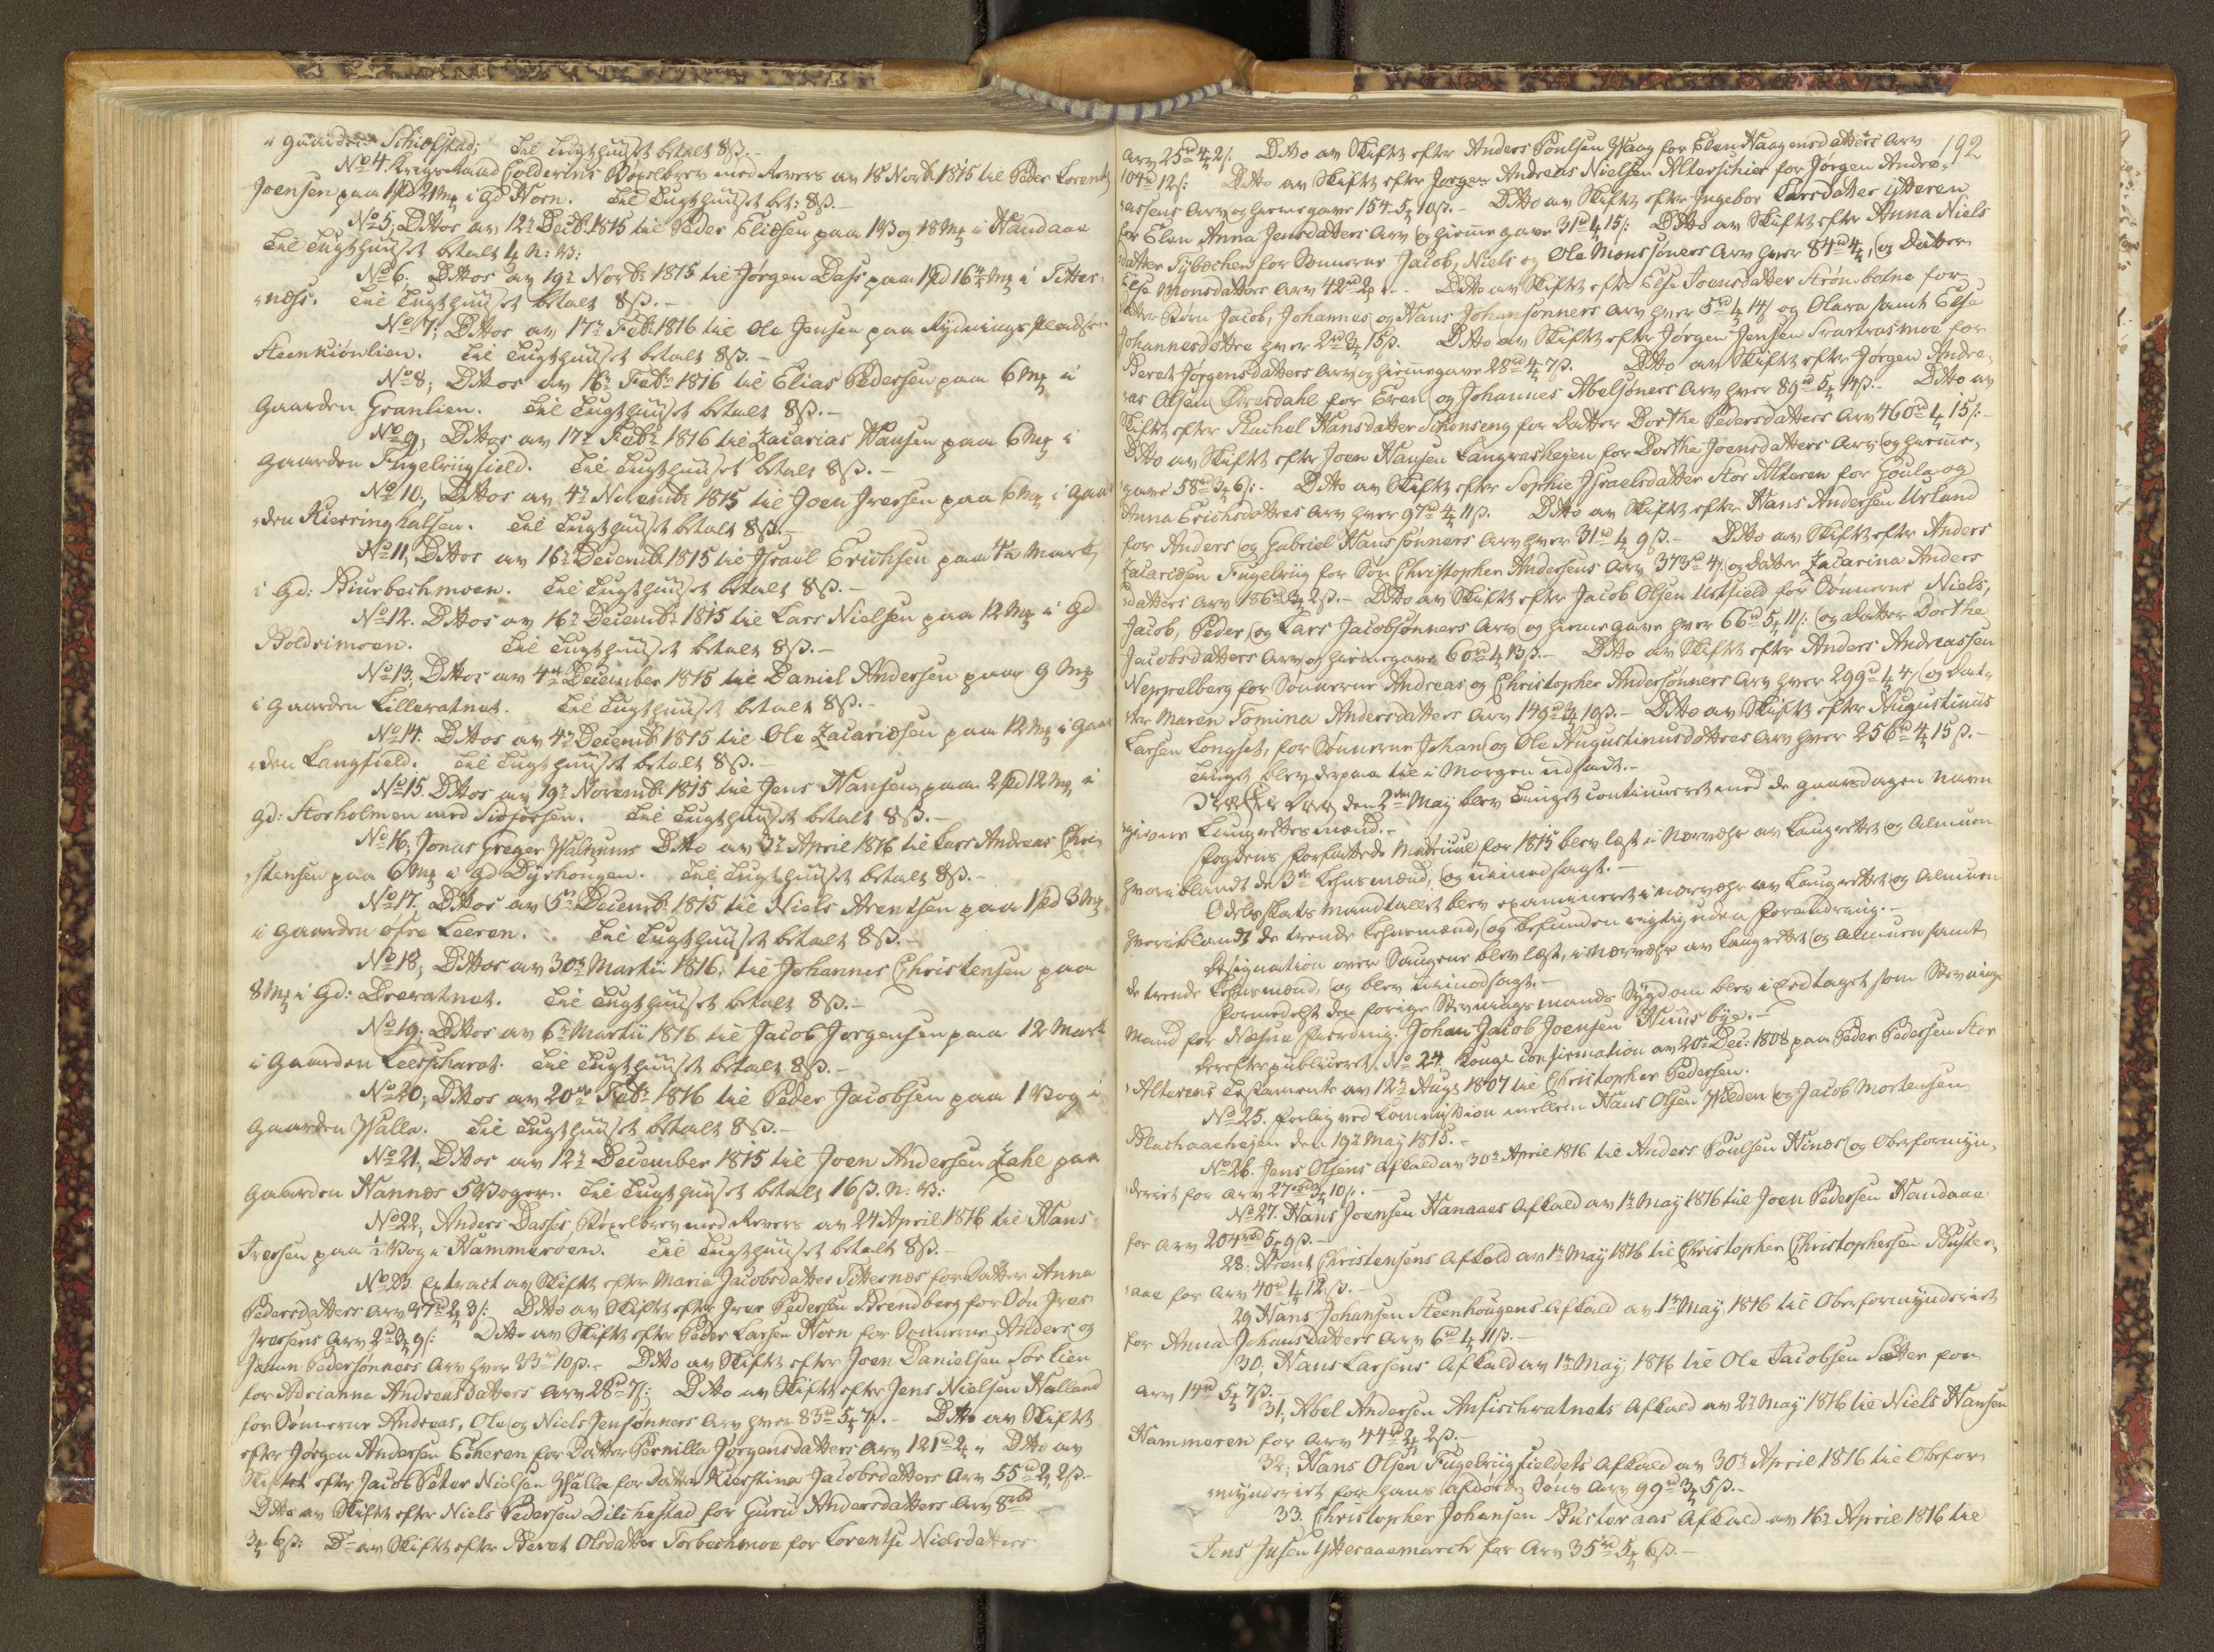 i Gaarden Schiefstad; Til Tugthuuset betalt 8ß.-
No 4. Krigsraad Colderins Bøxelbrev med Revers av 18 Novb. 1815 til Peder Lorentz
Joensen paa 1pd 21mk i Gd Horn. Til Tugthuuset bet: 8ß.-
No 5, Dittos av 12te Decbr. 1815 til Peder Eliæsen paa 1 Vog 18mk i Handaae
Til Tugthuuset betalt N: V:
No 6. Dittos av 19de Novbr: 1815 til Jørgen Dass paa 1pd 16mk i Titter
næss. Til Tugthuuset betalt 8ß.-
No 7; Dittos av 17de Febr. 1816 til Ole Jensen paa Rydningspladsen
Steenkiønlien. Til Tugthuuset betalt 8ß.-
No 8; Dittos av 16de Febr. 1816 til Elias Pedersen paa 6mk i
Gaarden Granlien. Til Tugthuuset betalt 8ß.-
No 9; Dittos av 17de Febr. 1816 til Zacarias Hansen paa 6mk i
Gaarden Fugelviigfield. Til Tugthuuset betalt 8ß.-
No 10, Dittos av 4de Novembr. 1815 til Joen Iversen paa 6mk i Gaar
den Kierringhalsen. Til Tugthuuset betalt 8ß.-
No 11, Dittos av 16de Decembr. 1815 til Israel Erichsen paa Mark
i Gd: Biurbechmoen. Til Tugthuuset betalt 8ß.-
No 12. Dittos av 16de Decembr. 1815 til Lars Nielsen paa 12mk i Gd
Boldrimoen. Til Tugthuuset betalt 8ß.-
No 13, Dittos av 4de December 1815 til Daniel Andersen paa 9mk
i Gaarden Lillevatnet. Til Tugthuuset betalt 8ß.-
No 14. Dittos av 4de Decemb. 1815 til Ole Zacariæsen paa 12mk i Gaar
den Langfield. Til Tugthuuset betalt 8ß.-
No 15. Dittos av 19de Novembr. 1815 til Jens Hansen paa 2pd 12mk i
Gd: Storholmen med Sidforsen. Til Tugthuuset betalt 8ß.-
No 16, Jonas Greger Walnums Ditto av 3de April 1816 til Lars Andreas Chri
stensen paa 6mk i Gd Dyrhougen. Til Tugthuuset betalt 8ß.-
No 17. Dittos av 5te Decembr. 1815 til Niels Arentsen paa 1pd 3mk
i Gaarden øfre Leeren. Til Tugthuuset betalt 8ß.-
No 18, Dittos av 30te Martii 1816, til Johannes Christensen paa
8mk i Gd: Drevatnet. Til Tugthuuset betalt 8ß.-
No 19; Dittos av 6te Martii 1816 til Jacob Jørgensen paa 12 Mark
i Gaarden Leerschardt. Til Tugthuuset betalt 8ß.-
No 20; Dittos av 20de Febr. 1816 til Peder Jacobsen paa 1 Vog i
Gaarden Walla. Til Tugthuuset betalt 8ß.-
No 21, Dittos av 12te December 1815 til Joen Andersen Zahl paa
Gaarden Hannæs 5 Voger. Til Tugthuuset betalt 16ß. N: V:
No 22, Anders Dasses, Bøxelbrev med Revers av 24 April 1816 til Hans
Iversen paa ½ Vog i Hammerøen. Til Tugthuuset betalt 8ß.-
No 23. Extract av Skifte efter Maria Jacobsdatter Titternæs for Datter Anna
Pedersdatters Arv 97rd 2 3ß: Ditto av Skifte efter Iver Pedersen Brendberg for Søn Iver
Iversens Arv 2rd 3 9ß: Ditto av Skifte efter Peder Larsen Horn for Sønnerne Anders og
Johan Pedersønners Arv hver 33rd 10ß.- Ditto av Skifte efter Joen Danielsen Sørlien
for Adrianna Andreasdatters Arv 28rd 7ß: Ditto av Skifte efter Jens Nielsen Halland
for Sønnerne Andreas, Ole og Niels Jensønners Arv hver 83rd 5 7ß.- Ditto av Skifte
efter Jørgen Andersen Echeren for Datter Pernilla Jørgensdatters Arv 121rd 2 " Ditto av
Skiftet efter Jacob Peter Nielsen Walla for Datter Kierstina Jacobsdatters Arv 55rd 2 2ß.-
Ditto av Skifte efter Niels Pedersen Dilchestad for Guru Andersdatters Arv 8rbd
3 6ß: Do av Skifte efter Beret Olsdatter Forbechmoe for Lorentse Nielsdatters
192
Arv 25rd 4 2ß: Ditto av Skifte efter Anders Poulsen Waag for Elen Haagensdatters Arv
104rd 12ß: Ditto av Skifte efter Jørgen Andreas Nielsen Alterschier for Jørgen Andre
assens Arv og Hiemegave 154 5 10ß.- Ditto av Skifte efter Ingebor Larsdatter Ytteren
for Elen Anna Jensdatters Arv og Hiemegave 31rd 4 15ß: Ditto av Skifte efter Anna Niels
datter Tybæchen for Sønnerne Jacob, Niels og Ole Monssøners Arv hver 84rd 4, og Datter
Else Monsdatters Arv 42rd 2 ". Ditto av Skifte efter Else Joensdatter Strømbotne for
Børn Jacob, Johannes og Hans Johansønners Arv hver 5rd 4 14ß og Olava samt Else
Johannesdatter hver 2rd 3 15ß. Ditto av Skifte efter Jørgen Jensen Svartvasmoe for
Beret Jørgensdatters Arv og Hiemmegave 28rd 4 7ß. Ditto av Skifte efter Jørgen Andre
as Olsen Øversdahl for Even og Johannes Abelsøners Arv hver 89rd 5 14ß.- Ditto av
Skifte efter Rachel Hansdatter Schonseng for Datter Dorthe Pedersdatters Arv 460rd 4 15ß.-
Ditto av Skifte efter Joen Hansen Langvasheien for Dorthe Joensdatters Arv og Hiemme
gave 58rd 3 6ß.- Ditto av Skifte efter Sophie Israelsdatter Stor Alteren for Goula og
Anna Erichsdatters Arv hver 97rd 4 11ß. Ditto av Skifte efter Hans Andersen Urland
for Anders og Gabriel Hanssønners Arv hver 31rd 4 9ß.- Ditto av Skifte efter Anders
Zacariæsen Fugelviig for Søn Christopher Andersens Arv 373rd 4ß og Datter Zacarina Anders
datters Arv 186rd 3 2ß.- Ditto av Skifte efter Jacob Olsen Urtfield for Sønnerne Niels,
Jacob, Peder og Lars Jacobsønners Arv og Hiemegave hver 66rd 5 11ß: og Datter Dorthe
Jacobsdatters Arv og Hiemegave 60rd 4 13ß.- Ditto av Skifte efter Anders Andreassen
Neppelberg for Sønnerne Andreas og Christopher Andersønners Arv hver 299rd 4 4ß og Dat
ter Maren Tomina Andersdatters Arv 149rd 4 10ß.- Ditto av Skifte efter Augustinus
Larsen Longset, for Sønnerne Johan og Ole Augustinusdatters Arv hver 256rd 4 15ß.-
Tinget blev derpaa til i Morgen udsadt.-
den 2den May blev Tinget continueret med de Gaarsdagen navn
givne Laugrettesmænd.-
Fogdens forfattede Matricul for 1815 blev læst i Nærvæhr av Laugrettet og Almuen
hvoriblandt de 3de Lehnsmænd, og uimodsagt.-
Odelsskats Mandtallet blev examineret i Nærvæhr av Laugrettet og Almuen
hvoriblandt de trende Lehnsmænd, og befunden rigtig uden Forandring.-
Designation over Saugene blev læst, i Nærvæhr av Laugrettet og Almuen samt
de trende Lehnsmænd, og blev uimodsagt.-
Formedelst den forrige Stevningsmands Sygdom blev i Eed taget som Stevnings
Mand for Næsna Fierding: Johan Jacob Joensen Huusbye.-
Derefter publiceret. No 24. Konge Confirmation av 20de Dec: 1808 paa Peder Pedersen Stor
Alterens Testamente av 12te Augt 1807 til Christopher Pedersen.
No 25. Forlig ved Commission mellem Hans Olsen Wilden og Jacob Mortensen
Plachaaeheien den 19de May 1815.-
No 26. Jens Olsens Afkald av 30te April 1816 til Anders Poulsen Hinæs og Oberformyn
deriet for Arv 27rbd 3 10ß.-
No 27. Hans Joensen Hanaaes Afkald av 1te May 1816 til Joen Pedersen Handaae
for Arv 204rbd 5 9ß.-
28. Arent Christensens Afkald av 1te May 1816 til Christopher Christophersen Buster
aae for Arv 40rd 4 12ß.-
29 Hans Johansen Steenhougens Afkald av 1te May 1816 til Oberformynderiet
for Anna Johansdatters Arv 6rd 4 11ß.-
30, Hans Larsens Afkald av 1te May 1816 til Ole Jacobsen Sætter for
Arv 14rd 5 7ß.-
31, Abel Andersen Anfischvatnets Afkald av 2de May 1816 til Niels Hansen
Hammeren for Arv 44rd 2 2ß.-
32; Hans Olsen Fugelviigfieldets Afkald av 30te April 1816 til Oberfor
mynderiet for hans afdøde Søns Arv 99rd 3 5ß.-
33. Christopher Johansen Busteraas Afkald av 16de April 1816 til
Jens Jusen Ytteraaemarch for Arv 35rd 5 6ß.-